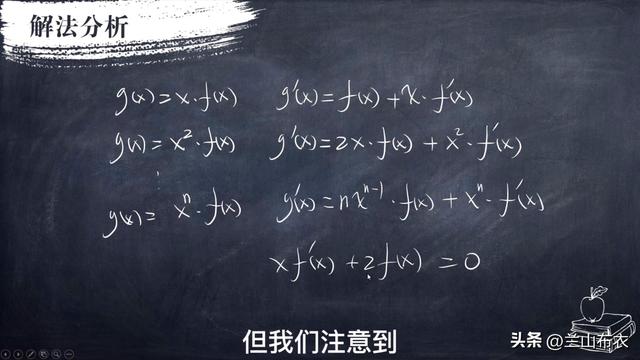 解法分析
g(x)=x·f(x) g′(x)=f(x)+x·f′(x)
g(x)=x²·f(x) g′(x)=2x·f(x)+x²·f′(x)
⋮
g(x)=xⁿ·f(x) g′(x)=nxⁿ⁻¹·f(x)+xⁿ·f′(x)
xf′(x)+2f(x)=0
但我们注意到
头条 @兰山布衣